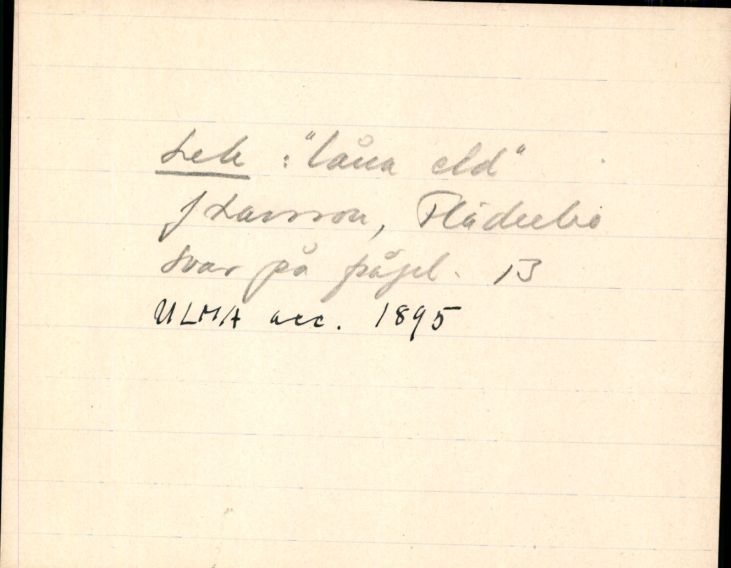 Lek : "låna eld"
J Larsson, Fläderbo
Svar på frågel. 13
ULMA acc. 1895